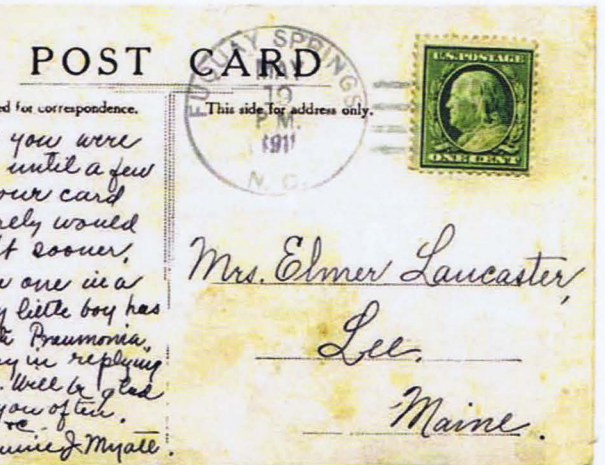 POST CARD
ed for correspondence.
This side for address only.
FUQUAY SPRINGS
MAY
19
P.M.
1911
N. C.
U.S. POSTAGE
ONE CENT
you were
until a few
our card
rely would
t sooner,
one in a
little boy has
Pneumonia,
y in replying
. Will be glad
you often.
Myatt.
Mrs. Elmer Lancaster,
Lee,
Maine.